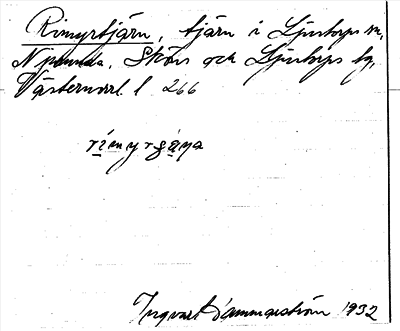 Rimyrtjärn, tjärn i Ljustorps sn,
N parunda. Sköns och Ljustorps tg,
Västernorrl. l 266
rimyrgäṇa
Ingvar Hammarström 1932